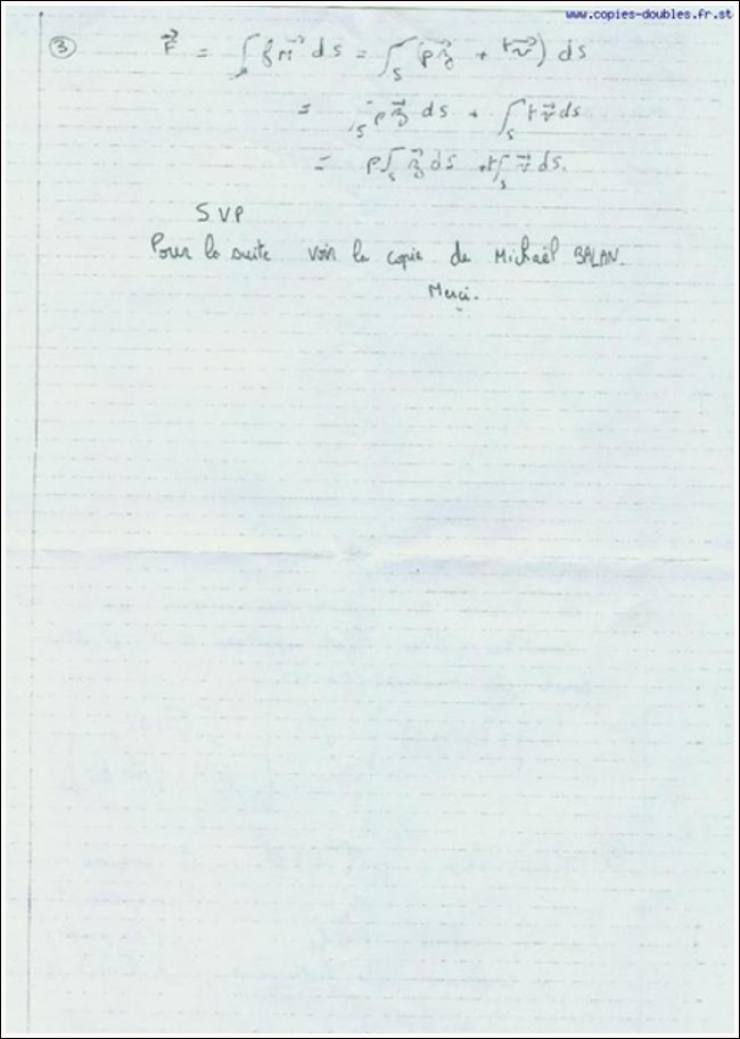 www.copies-doubles.fr.st
③ F⃗ = ∫ f m⃗ ds = ∫s (p z⃗ + t v⃗) ds
= ∫s p z⃗ ds + ∫s t v⃗ ds
= p ∫s z⃗ ds + t ∫s v⃗ ds.
SVP
Pour la suite voir la copie de Michaël BALAN.
Merci.